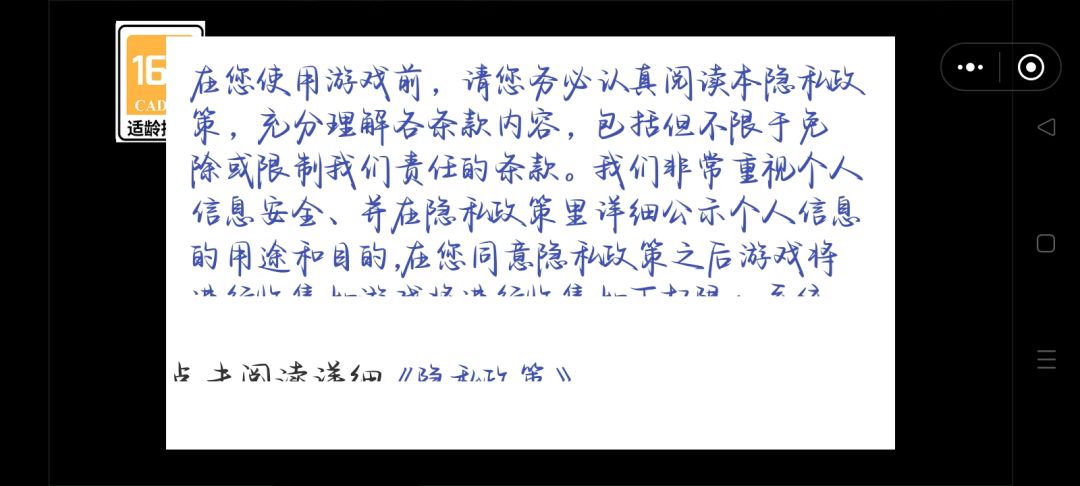 16
CAD
适龄
在您使用游戏前，请您务必认真阅读本隐私政
策，充分理解各条款内容，包括但不限于免
除或限制我们责任的条款。我们非常重视个人
信息安全、并在隐私政策里详细公示个人信息
的用途和目的,在您同意隐私政策之后游戏将
进行收集如游戏将进行收集如下权限：系统
点击阅读详细《隐私政策》